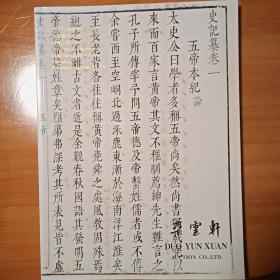 史記纂卷一
五帝本紀論
太史公曰學者多稱五帝尚矣然尚書獨載堯以
來而百家言黃帝其文不雅馴薦紳先生難言之
孔子所傳宰予問五帝德及帝繫姓儒者或不傳
余嘗西至空峒北過涿鹿東漸於海南浮江淮矣
至長老皆各往往稱黃帝堯舜之處風教固殊焉
總之不離古文者近是余觀春秋國語其發明五
帝德帝繫姓章矣顧第弗深考其所表見皆不虛
史記纂卷一 五帝
雲軒
DUO YUN XUAN
AUCTION CO.,LTD.